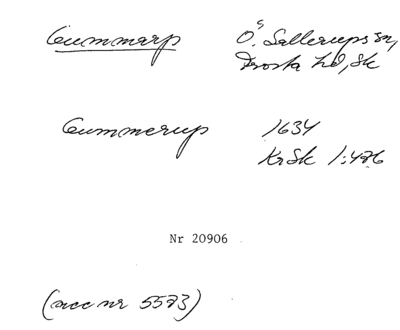 Gummarp Ö. Sallerups sn,
Frosta hd, Sk
Gummerup 1634
KrSk 1:476
Nr 20906
(acc nr 5573)